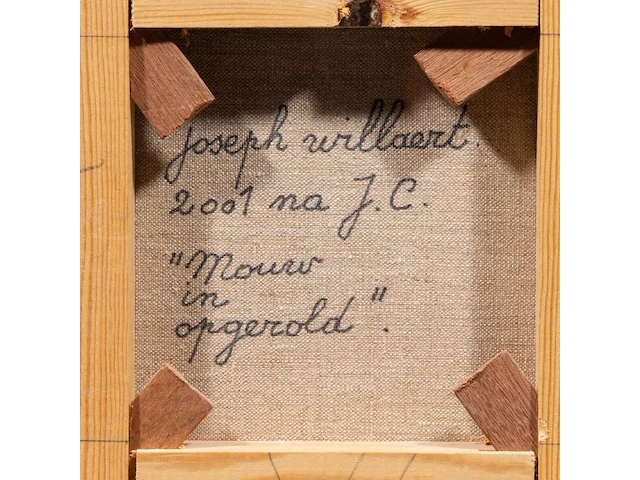 Joseph willaert.
2001 na J.C.
"Mouw
in
opgerold".